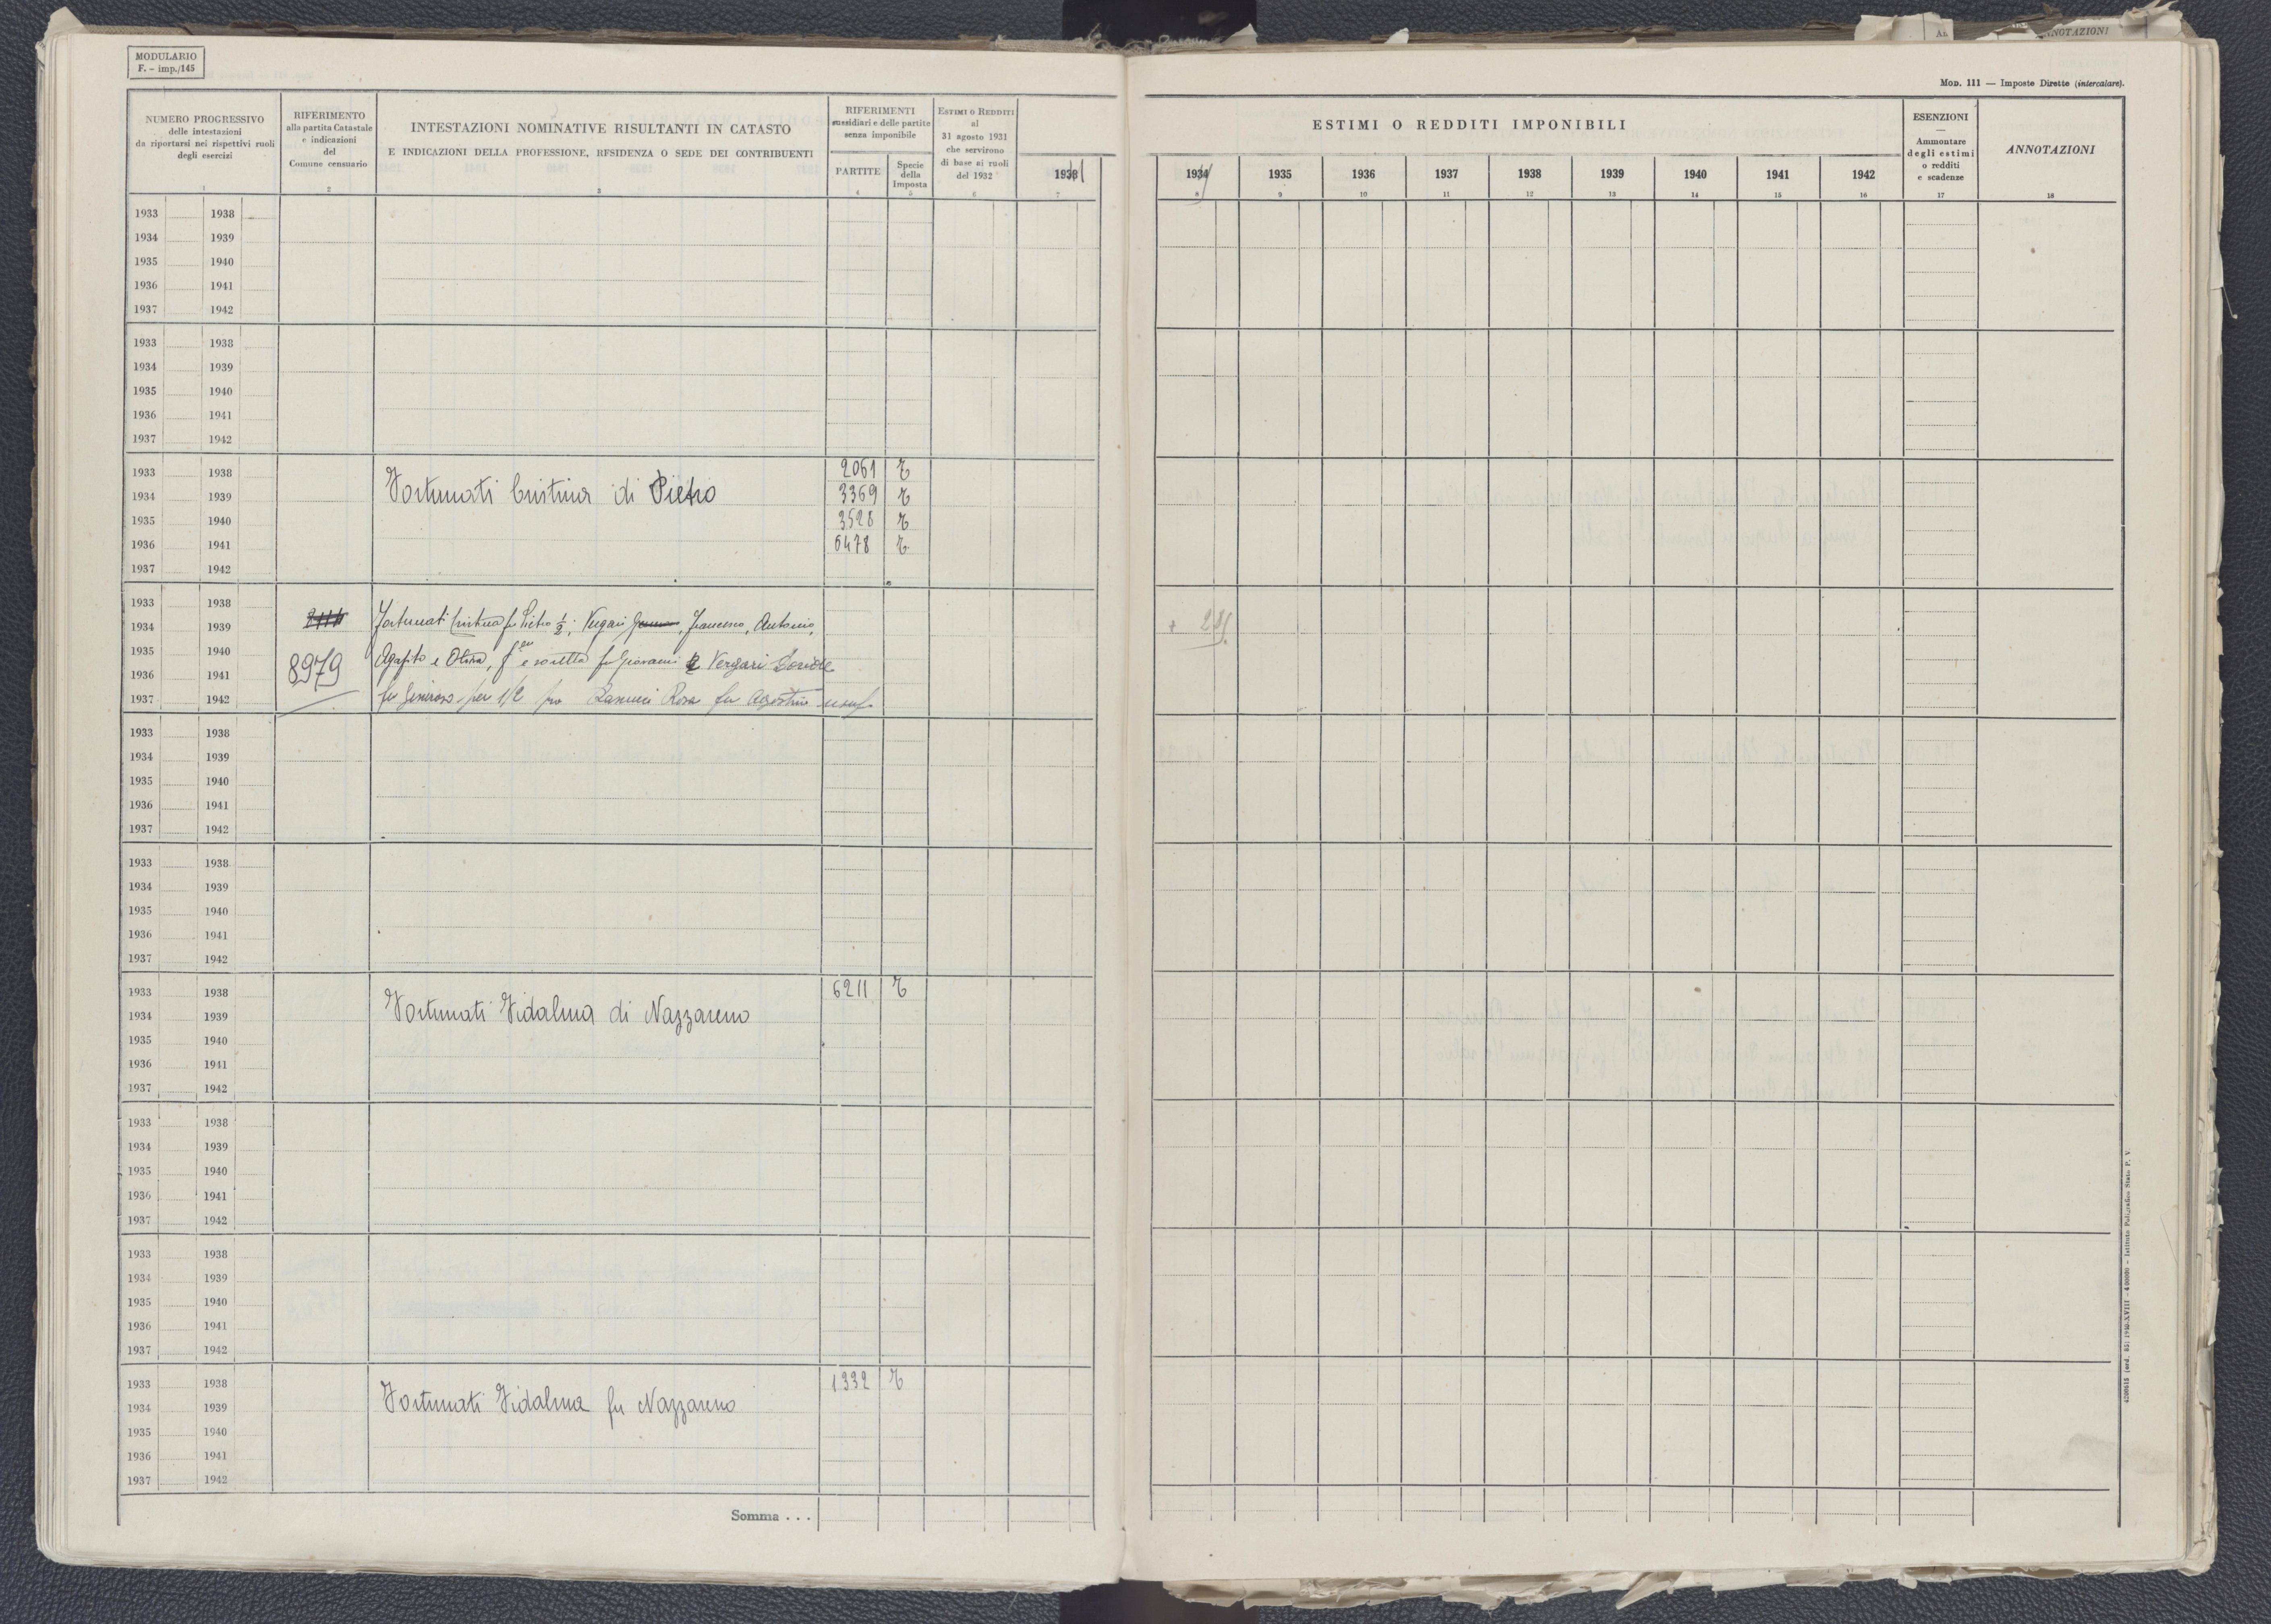 MODULARIO
F. - imp./145
NUMERO PROGRESSIVO
delle intestazioni
da riportarsi nei rispettivi ruoli
degli esercizi
1
RIFERIMENTO
alla partita Catastale
e indicazioni
del
Comune censuario
2
INTESTAZIONI NOMINATIVE RISULTANTI IN CATASTO
E INDICAZIONI DELLA PROFESSIONE, RESIDENZA O SEDE DEI CONTRIBUENTI
3
RIFERIMENTI
sussidiari e delle partite
senza imponibile
PARTITE
4
Specie
della
Imposta
5
ESTIMI O REDDITI
al
31 agosto 1931
che servirono
di base ai ruoli
del 1932
6
7
1933 1938
1934 1939
1935 1940
1936 1941
1937 1942
1933 1938
1934 1939
1935 1940
1936 1941
1937 1942
1933 1938 2061 T
1934 1939 Fortunati Cristina di Pietro 3369 T
1935 1940 3528 T
1936 1941 6478 T
1937 1942
1933 1938
1934 1939 Fortunati Cristina fu Pietro 1/2; Vergari Francesco, Antonio,
1935 1940 Agapito e sorella fu Giovanni Vergari
1936 1941 8979
1937 1942 fu Generoso per 1/2 Rosa fu Agostino usuf.
1933 1938
1934 1939
1935 1940
1936 1941
1937 1942
1933 1938
1934 1939
1935 1940
1936 1941
1937 1942
1933 1938 6211 T
1934 1939 Fortunati Fidalma di Nazzareno
1935 1940
1936 1941
1937 1942
1933 1938
1934 1939
1935 1940
1936 1941
1937 1942
1933 1938
1934 1939
1935 1940
1936 1941
1937 1942
1933 1938 1332 T
1934 1939 Fortunati Fidalma fu Nazzareno
1935 1940
1936 1941
1937 1942
Somma . . .
ANNOTAZIONI
MOD. 111 — Imposte Dirette (intercalare).
ESTIMI O REDDITI IMPONIBILI
1934 1935 1936 1937 1938 1939 1940 1941 1942
8 9 10 11 12 13 14 15 16
ESENZIONI
—
Ammontare
degli estimi
o redditi
e scadenze
17
ANNOTAZIONI
18